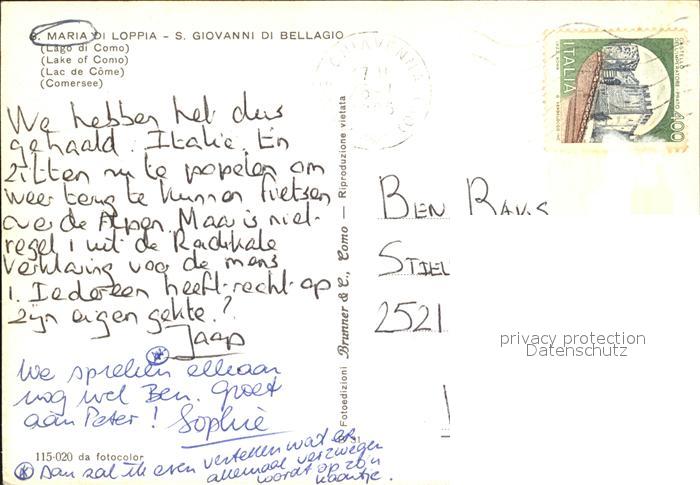 S. MARIA DI LOPPIA - S. GIOVANNI DI BELLAGIO
(Lago di Como)
(Lake of Como)
(Lac de Côme)
(Comersee)
We hebben het dus
gehaald. Italie. En
zitten nu te popelen om
weer terug te kunnen fietsen
over de Alpen. Maar is niet
regel 1 uit de Radikale
Verklaring voor de mens
1. Iedereen heeft recht op
zijn eigen gekte?
Jaap
We spreken elkaar
nog wel Ben. Groet
aan Peter! Sophie
115-020 da fotocolor
Dan zal ik even vertellen wat er
allemaal verzwegen
wordt op zo'n
kaartje.
Fotoedizioni Brunner & C., Como — Riproduzione vietata
CHIAVENNA
ITALIA
400
BEN
STIEL
2521
privacy protection
Datenschutz